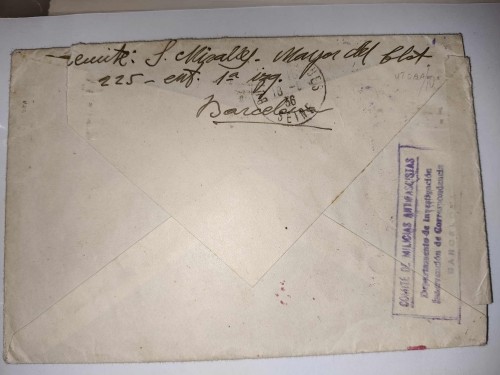 Remite: S. Miralles. Mayor del Clot
225 - ent. 1ª izq.
Barcelona
36
SEINE
COMITE DE MILICIAS ANTIFASCISTAS
Departamento de Investigación
Intervención de Correspondencia
BARCELONA